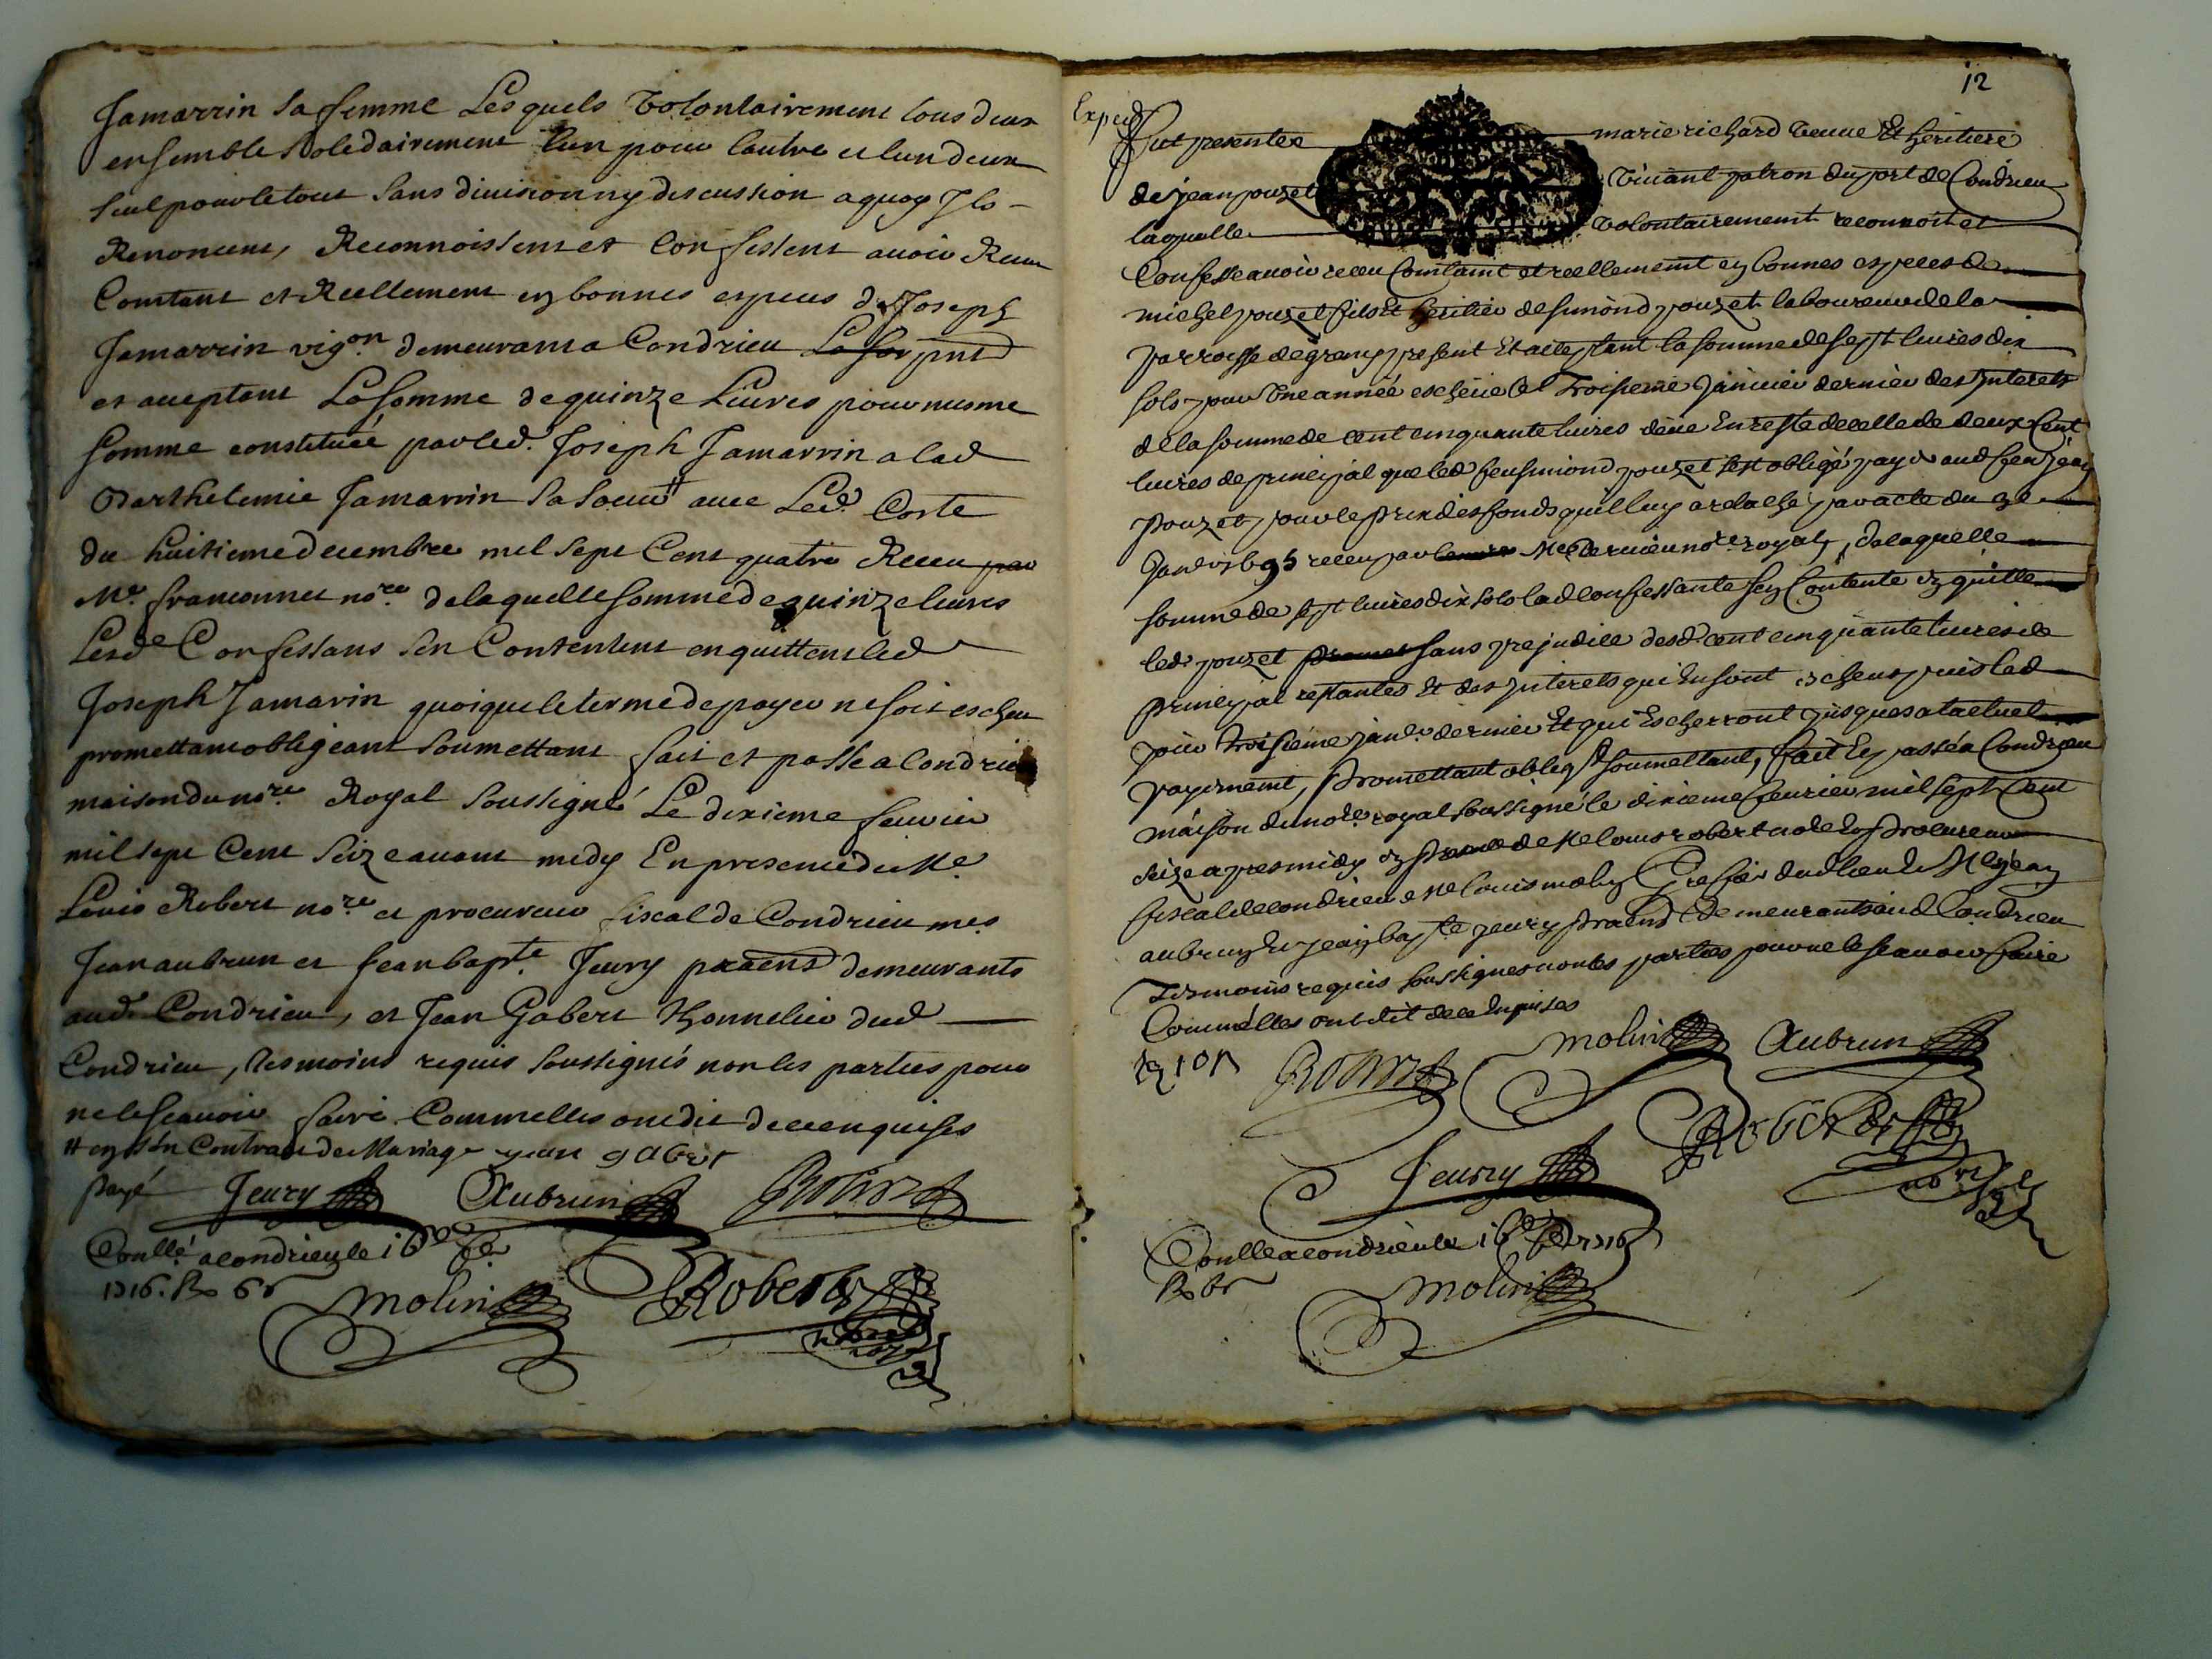 Jamarrin sa femme Lesquels Volontairement tous deux
ensemble solidairement l'un pour l'autre et l'un deux
seul pour le tout sans division ny discussion a quoy Ils
Renoncent, Reconnoissent et Confessent avoir Receu
Comtant et Reellement en bonnes especes de Joseph
Jamarrin vigon. demeurant a Condrieu
et acceptant La somme de quinze Livres pour mesme
somme constituée par led. Joseph Jamarrin a lad
Barthelemie Jamarrin sa soeur # avec Led. Coste
du huitieme decembre mil sept Cent quatre Receu par
Me. franconnet nore. de laquelle somme de quinze livres
Lesd. Confessans s'en Contentent en quittent led
Joseph Jamarin quoique le terme de payer ne soit escheu
promettant obligeant soumettant fait et passé a Condrieu
maison du nore. Royal soussigné Le dixieme fevrier
mil sept Cent seize avant midy En presence de Me.
Louis Robert nore. et procureur fiscal de Condrieu mes
Jean aubrun et Jean bapte. Jeury praticns demeurants
aud. Condrieu, et Jean Gabert Thonnelier dud
Condrieu, tesmoins requis soussignés non les parties pour
ne le scavoir faire Comm'elles ont dit de ce enquises
# en son Contract de Mariage jean gabert
payé Jeury Aubrun Robert
Conllé a condrieu le 16e fer.
1716. R 6s molin Robert
nore royal
12
Exped
Fut presente marie richard veuve Et heritiere
de jean pouzet vivant patron du port de Condrieu
laquelle volontairement reconnoit et
Confesse avoir receu Comtant et reellement en bonnes especes de
michel pouzet fils Et heritier de simond pouzet laboureur de la
parroisse de present Et acceptant la somme de sept livres dix
sols pour Une année escheüe le Troisieme janvier dernier des Interets
de la somme de cent cinquante livres deüe En reste de celle de deux Cent
livres de principal que led feu simond pouzet s'est obligé payer aud feu jean
Pouzet pour le prix des fonds qu'il luy a relaché par acte du 3e
janvr 1695 receu par Me Vernieu nore royal, de laquelle
somme de sept livres dix sols lad confessante s'en Contente En quitte
led. pouzet sans prejudice desd. cent cinquante livres de
principal restantes Et des Interets qui En sont escheus puis led
jour troisieme janvr dernier Et qui Escherront jusques a l'actuel
payement, Promettant obligt soumettant, fait Et passé a Condrieu
maison du nore royal soussigné le dixieme fevrier mil sept Cent
seize apres midy En presence de Me louis robert nore Et Procureur
fiscal de condrieu Me louis molin Greffier dud lieu Me jean
aubrun Et jean bapte jeury Praticns demeurants aud Condrieu
Tesmoins requis soussignes non les parties pour ne le scavoir faire
Comm'elles ont dit de ce Enquises
Robert molin Aubrun
Jeury Robert
nore royal
Conllé a condrieu le 16e fer 1716
R 6s molin